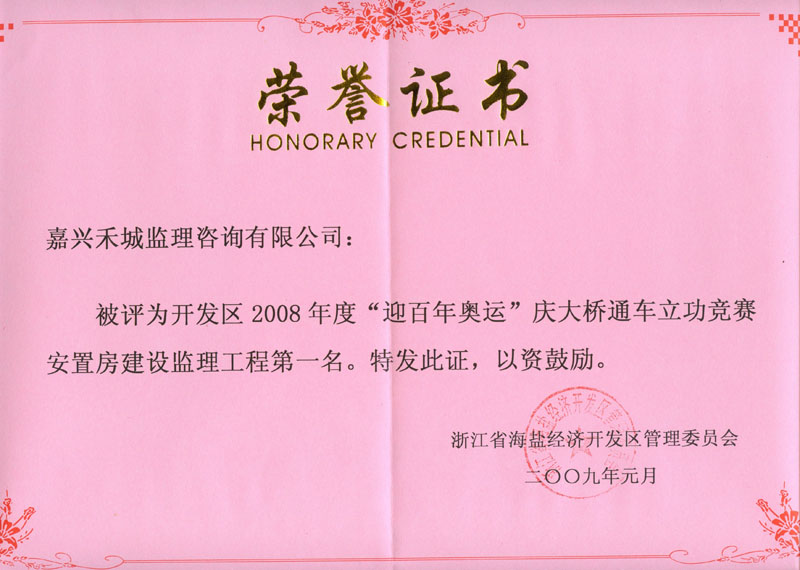 荣誉证书
HONORARY CREDENTIAL
嘉兴禾城监理咨询有限公司：
被评为开发区 2008 年度“迎百年奥运”庆大桥通车立功竞赛
安置房建设监理工程第一名。特发此证，以资鼓励。
浙江省海盐经济开发区管理委员会
二〇〇九年元月